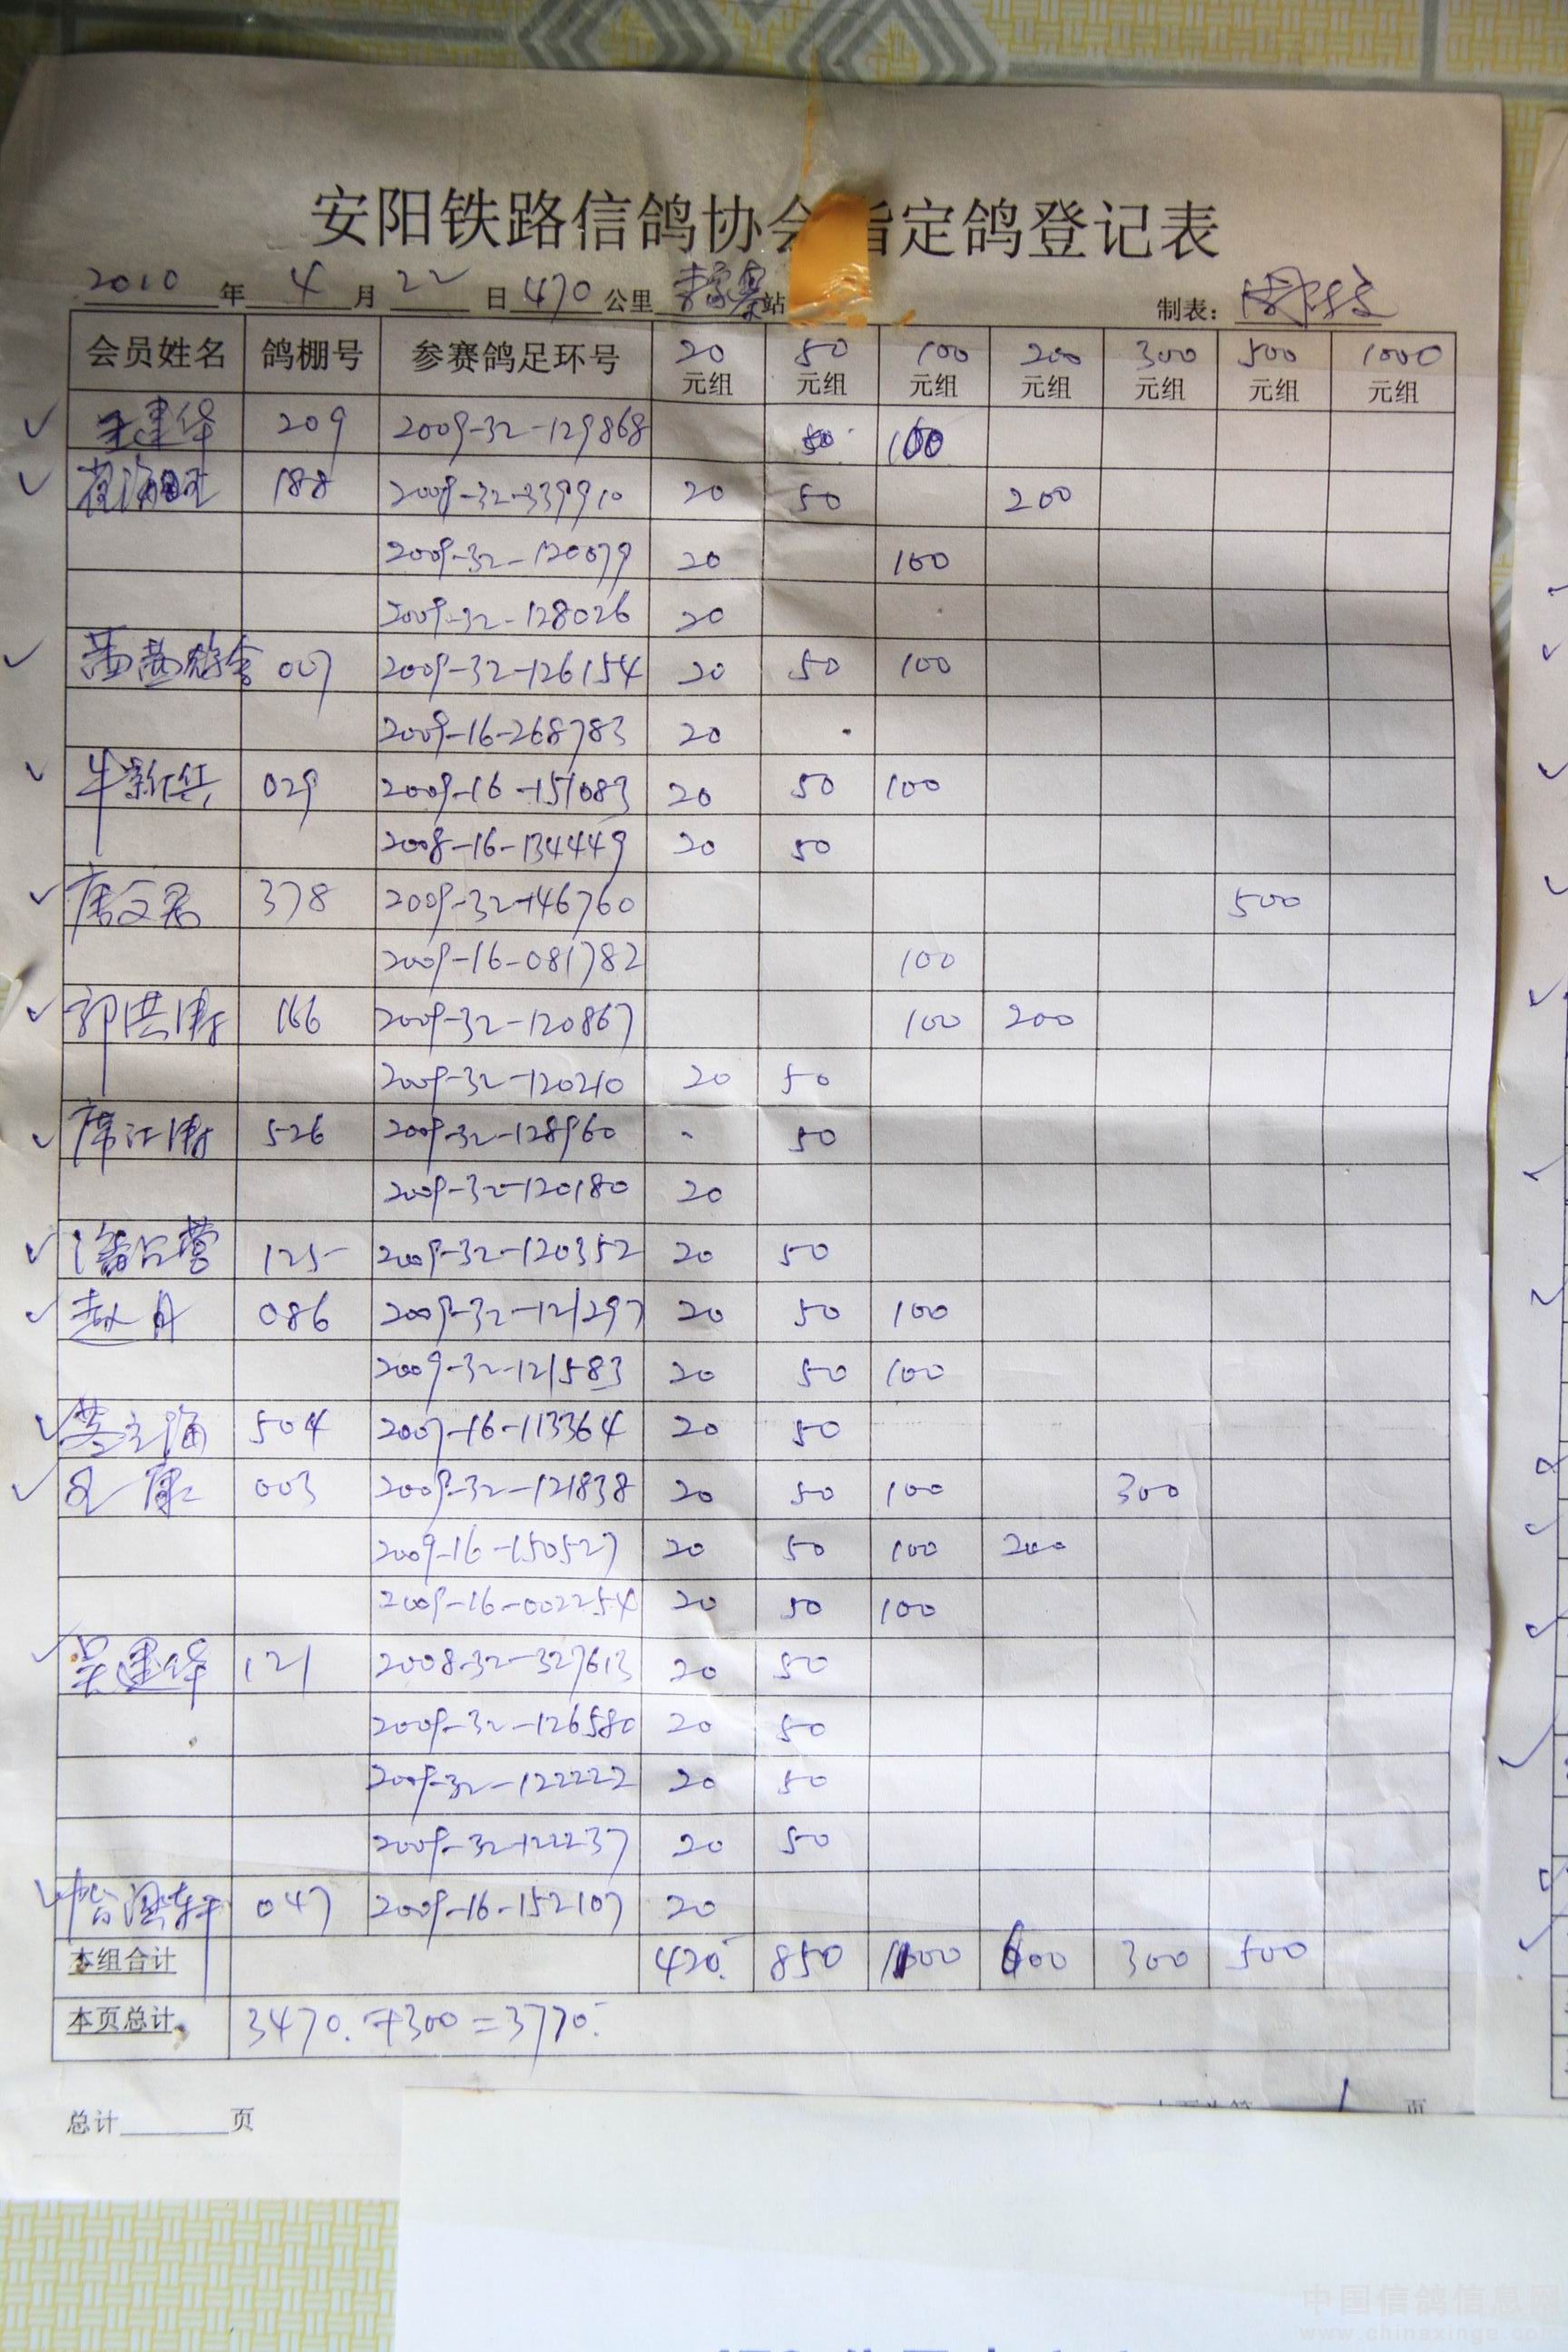 安阳铁路信鸽协会指定鸽登记表
2010年 4月 22日 470公里 站 制表：
会员姓名 鸽棚号 参赛鸽足环号 20元组 50元组 100元组 200元组 300元组 500元组 1000元组
王建华 209 2009-32-129868 50 100
188 2009-32-339910 20 50 200
2009-32-120079 20 100
2009-32-128026 20
007 2009-32-126154 20 50 100
2009-16-268783 20
牛新红 029 2009-16-151083 20 50 100
2008-16-134449 20 50
唐文君 378 2009-32-146760 500
2009-16-081782 100
郭洪 166 2009-32-120867 100 200
2009-32-120210 20 50
席江 526 2009-32-128960 50
2009-32-120180 20
125 2009-32-120352 20 50
赵丹 086 2009-32-121297 20 50 100
2009-32-121583 20 50 100
海 504 2007-16-113364 20 50
003 2009-32-121838 20 50 100 300
2009-16-150527 20 50 100 200
2009-16-002254 20 50 100
吴建华 121 2008-32-327613 20 50
2009-32-126580 20 50
2009-32-122222 20 50
2009-32-122237 20 50
047 2009-16-152107 20
本组合计 420 850 1100 600 300 500
本页总计 3470.+300=3770.
总计 页 1 页
中国信鸽信息网
www.chinaxinge.com